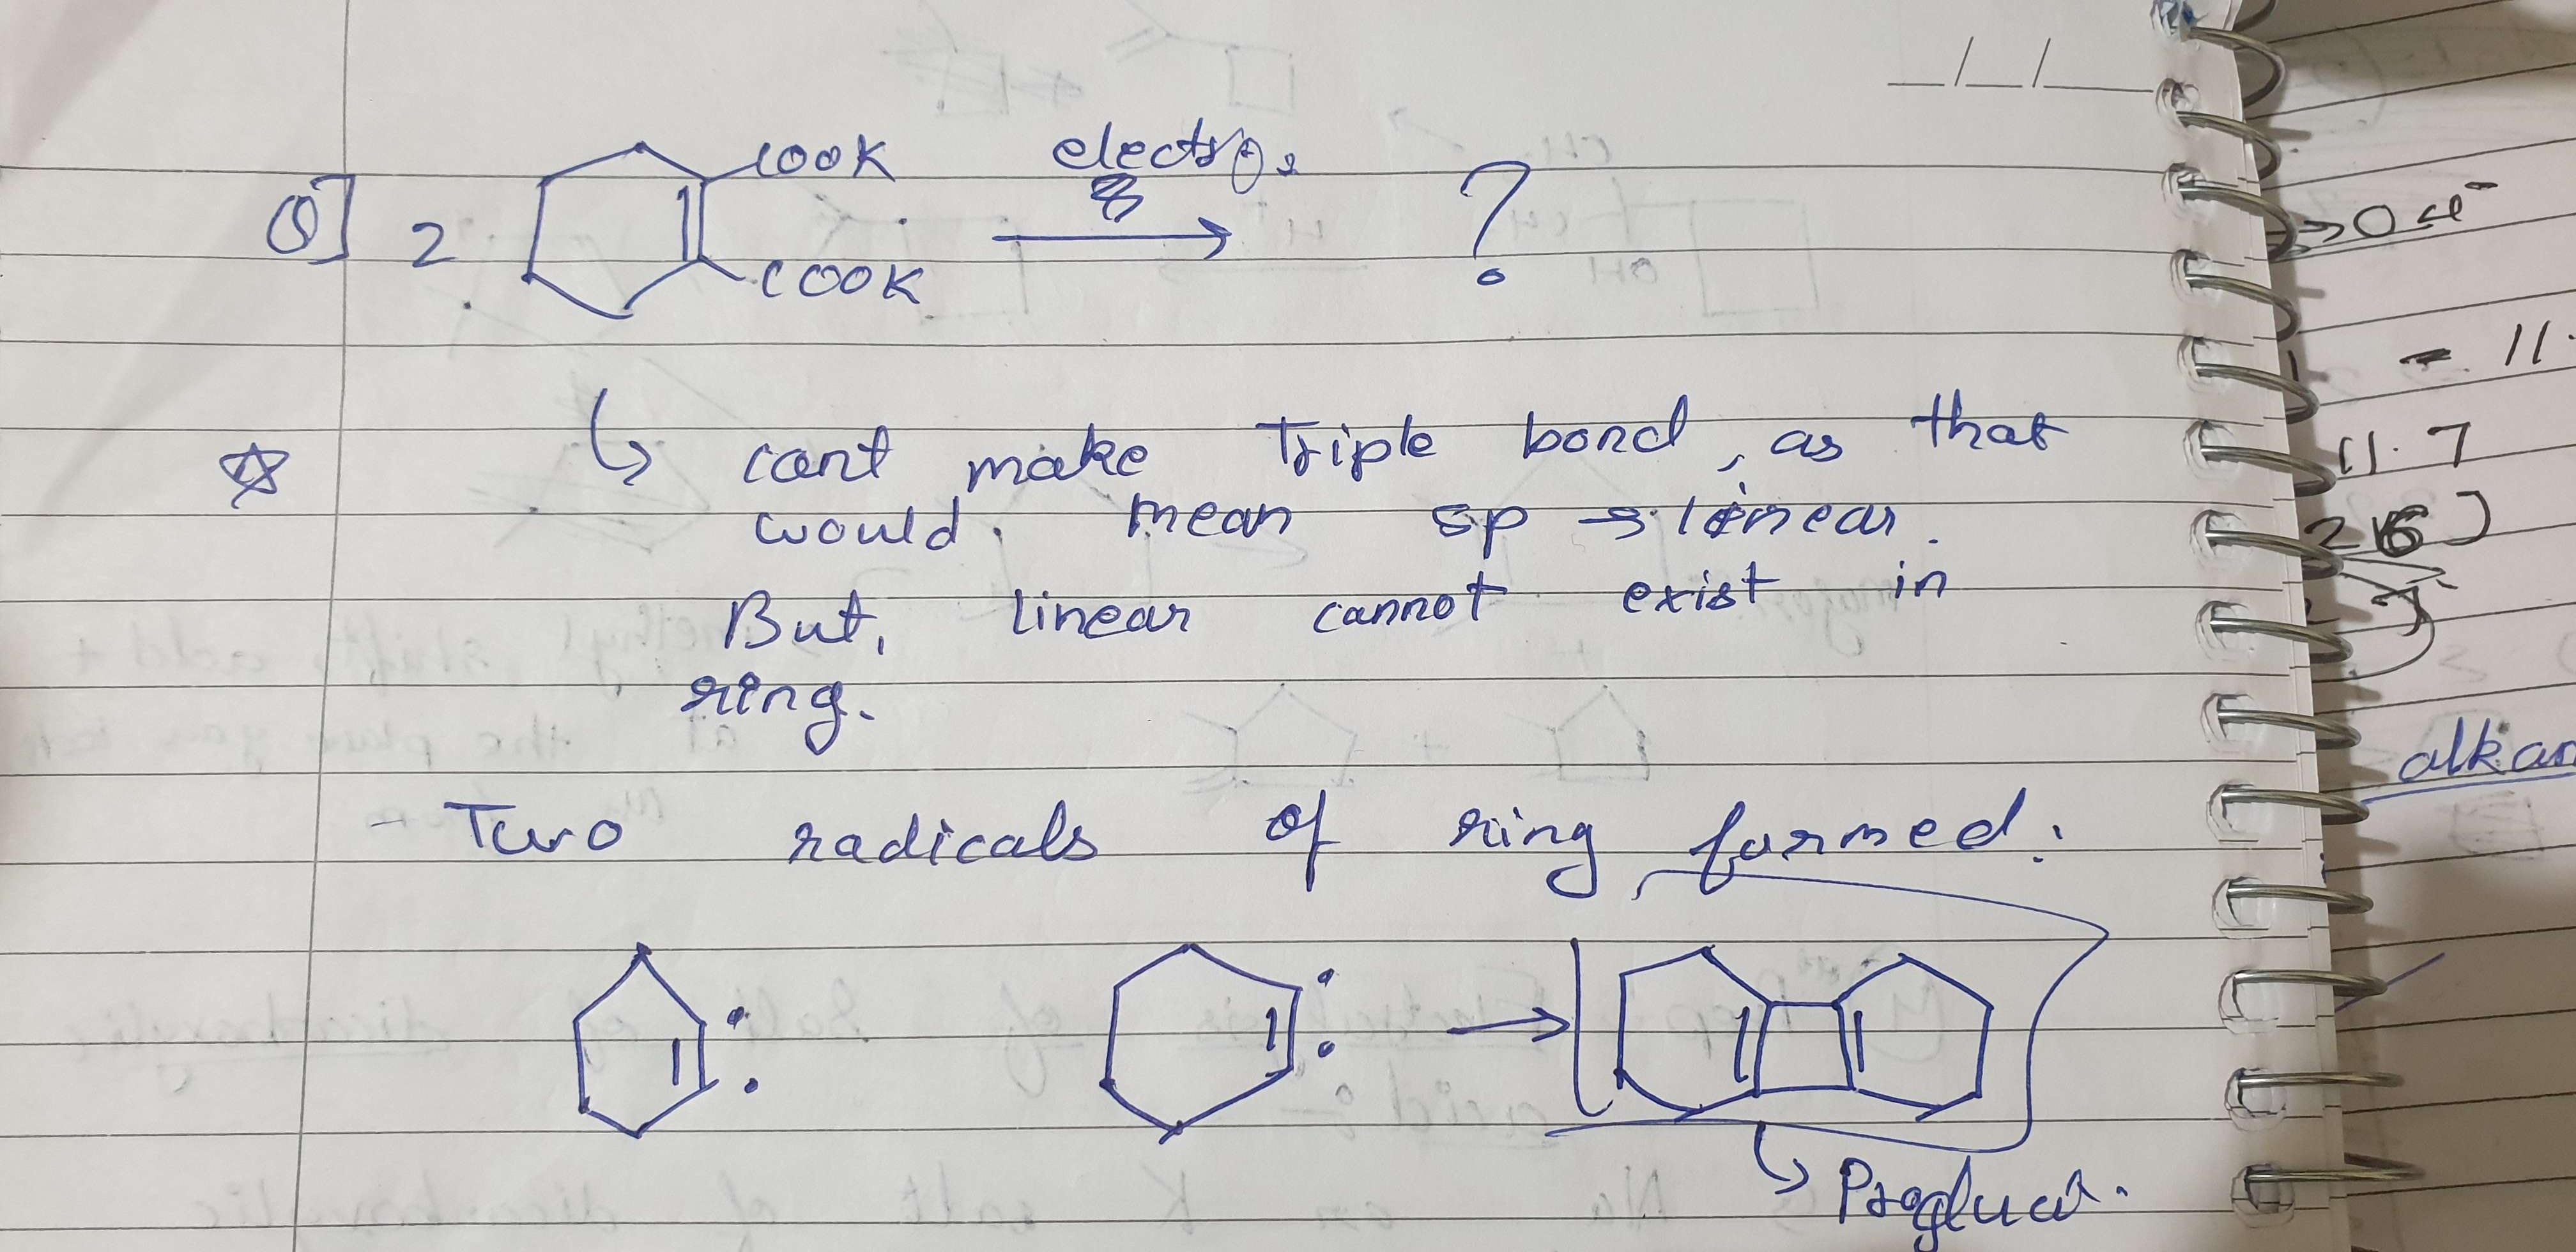 __/__/__
Q] 2 COOK COOK electro ?
→ cant make Triple bond, as that
would mean sp → linear.
But, linear cannot exist in
ring.
- Two radicals of ring formed:
→ Product.
→ OH⁻
- 11.
11.7
alkan